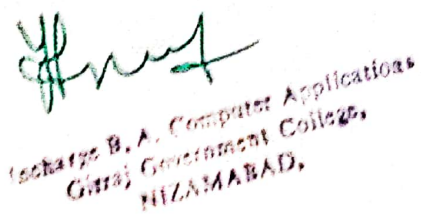 Incharge B. A. Computer Applications
Giriraj Government College,
NIZAMABAD.